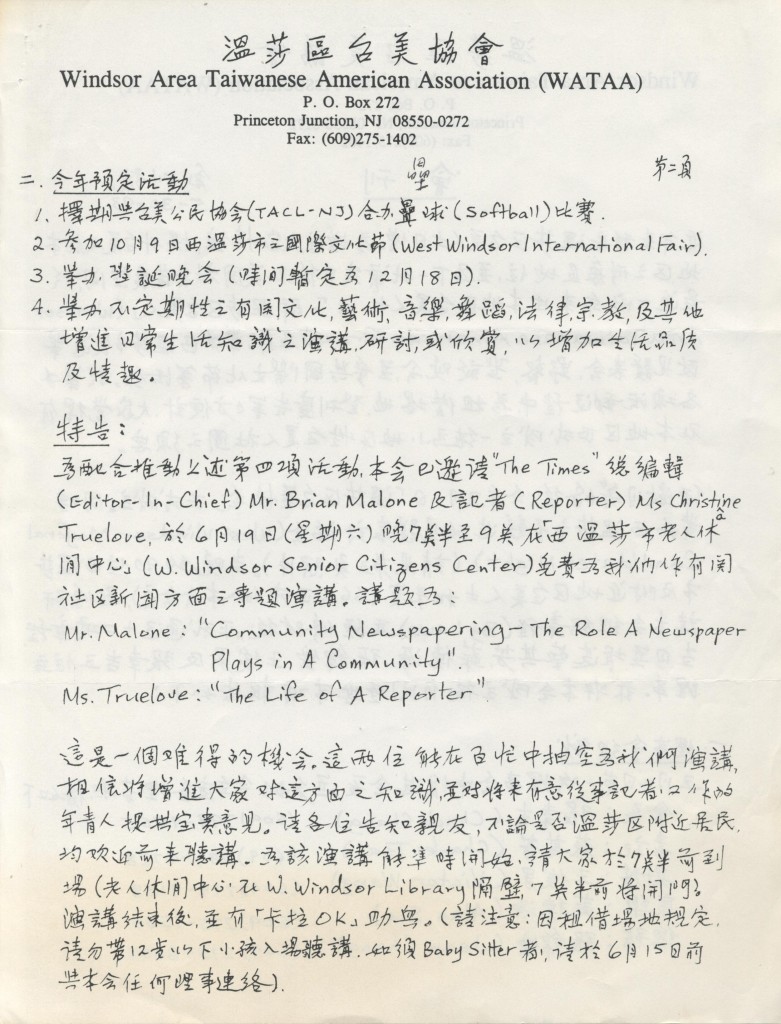 溫莎區台美協會
Windsor Area Taiwanese American Association (WATAA)
P. O. Box 272
Princeton Junction, NJ 08550-0272
Fax: (609)275-1402
第二頁
二. 今年預定活動
壘
1. 擇期與台美公民協會(TACL-NJ)合办壘球(Softball)比賽.
2. 參加10月9日西溫莎市之國際文化節(West Windsor International Fair).
3. 举办聖誕晚会(時间暫定為12月18日).
4. 举办不定期性之有関文化,藝術,音樂,舞蹈,法律,宗教,及其他
增進日常生活知識之演講,研討,或欣賞,以增加生活品质
及情趣。
特告:
為配合推動上述第四項活動,本会已邀请"The Times"總編輯
(Editor-In-Chief) Mr. Brian Malone 及記者(Reporter) Ms Christine
Truelove, 於6月19日(星期六)晚7点半至9点在「西溫莎市老人休
a
閒中心」(W. Windsor Senior Citizens Center)免費為我们作有関
社区新聞方面之專題演講。講題為:
Mr. Malone: "Community Newspapering-The Role A Newspaper
Plays in A Community".
Ms. Truelove: "The Life of A Reporter".
這是一個难得的機会。這兩位能在百忙中抽空為我們演講,
相信將增進大家对這方面之知識,並对將来有意從事記者工作的
年青人提供宝貴意見。请各位告知親友,不論是否溫莎区附近居民,
均欢迎前来聽講。為該演講能準時開始,請大家於7点半前到
場(老人休閒中心在W. Windsor Library隔壁,7点半前將開門)。
演講结束後,並有「卡拉OK」助興。(請注意:因租借場地規定,
请勿带12岁以下小孩入場聽講.如須Baby Sitter者,请於6月15日前
與本会任何理事連络).